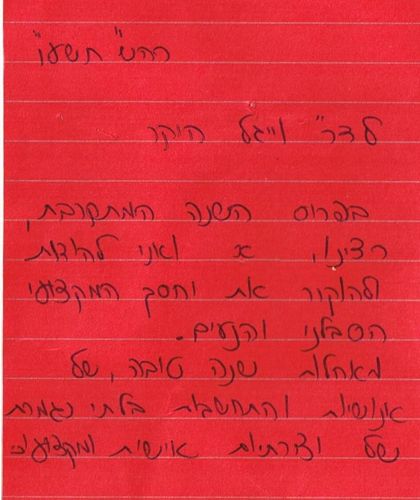 רהש" תשעו"
לדר" וייגל היקר
בפרוס השנה המתקרבת,
רצינו, א ואני להודות
ולהוקיר את יחסך המקצועי
הסבלני והנעים.
מאחלות שנה טובה, של
אנושיות והתחשבות בלתי נגמרת
ושל יצירתיות אישית ומקצועית